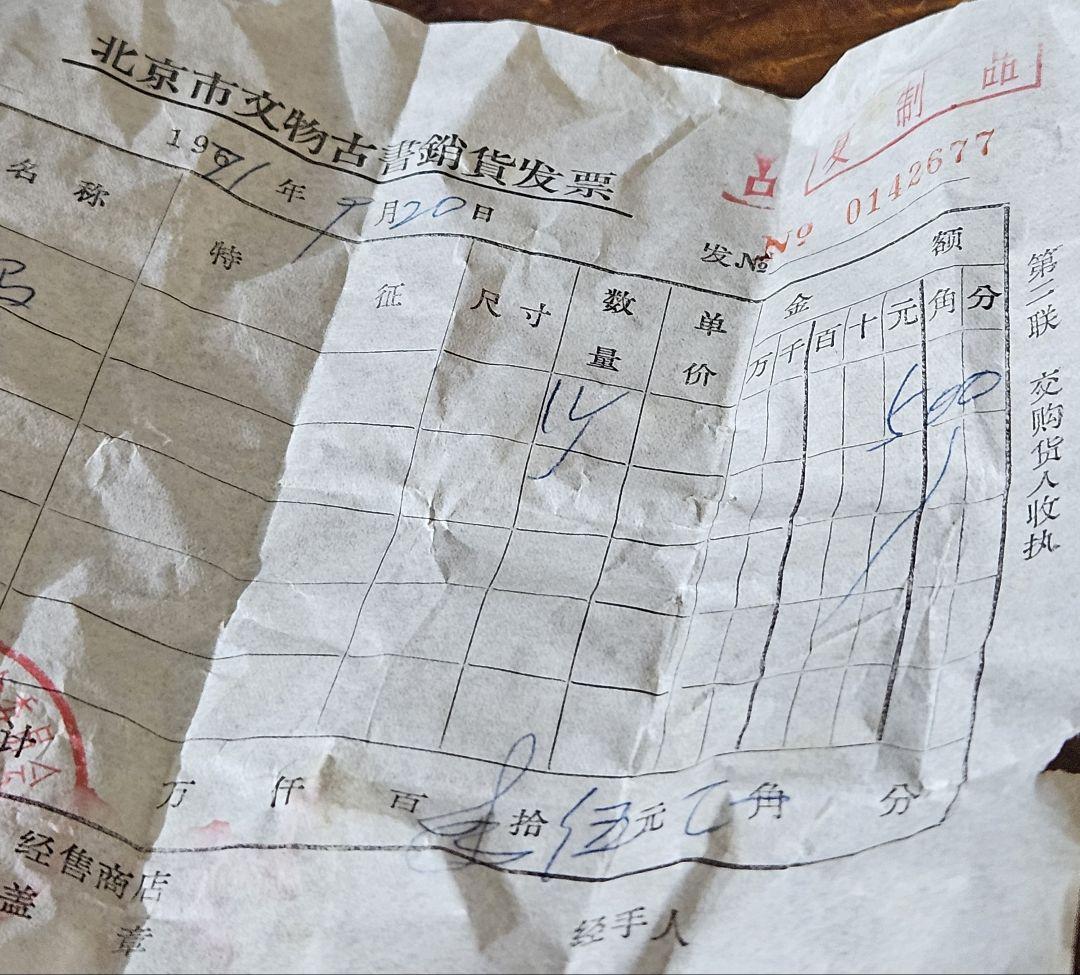 北京市文物古書銷貨发票
复制品
196 年 9月20日
发№
№ 0142677
名称 特征 尺寸 数量 单价 金额
万千百十元角分
500
万 仟 百 拾伍元 角 分
计
经售商店
盖章
经手人
第二联 交购货人收执